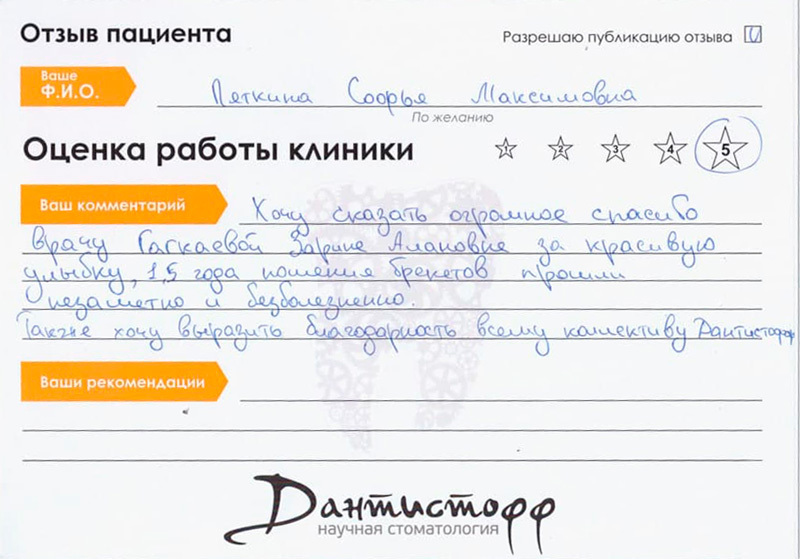 Отзыв пациента
Разрешаю публикацию отзыва
Ваше
Ф.И.О.
Пяткина Софья Максимовна
По желанию
Оценка работы клиники
1 2 3 4 5
Ваш комментарий
Хочу сказать огромное спасибо
врачу Гаткаевой Зарине Алановне за красивую
улыбку, 1,5 года ношения брекетов прошли
незаметно и безболезненно.
Также хочу выразить благодарность всему коллективу Дантистофф
Ваши рекомендации
Дантистофф
научная стоматология